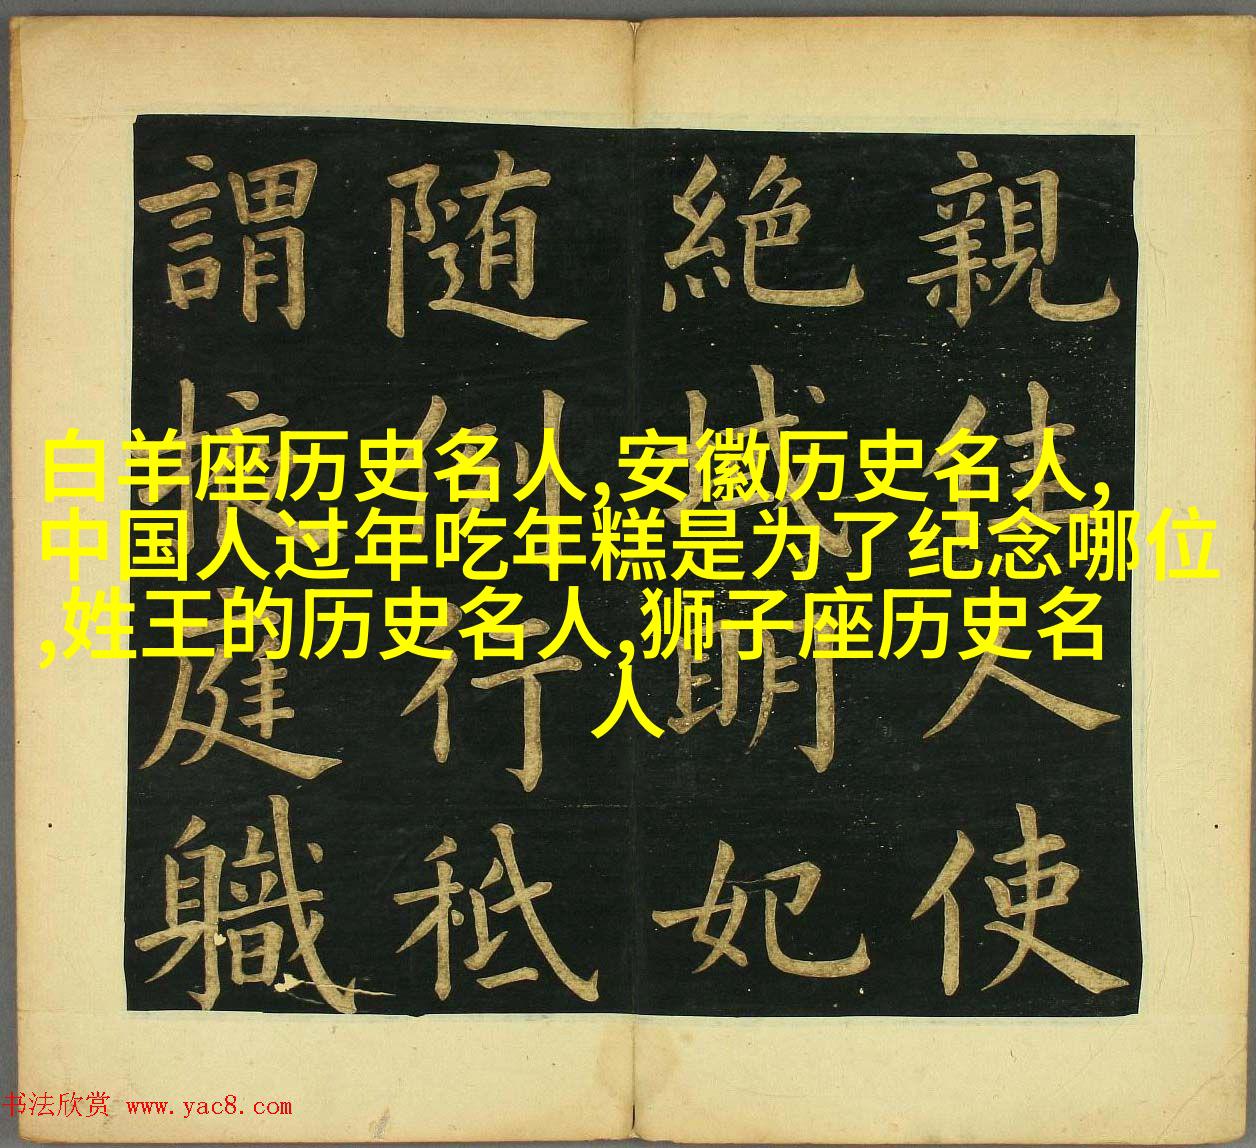 白羊座历史名人,安徽历史名人,
中国人过年吃年糕是为了纪念哪位
,姓王的历史名人,狮子座历史名
人
親
使
絶
妃
随
行
秪
謂
庭
軄
书法欣赏 www.yac8.com